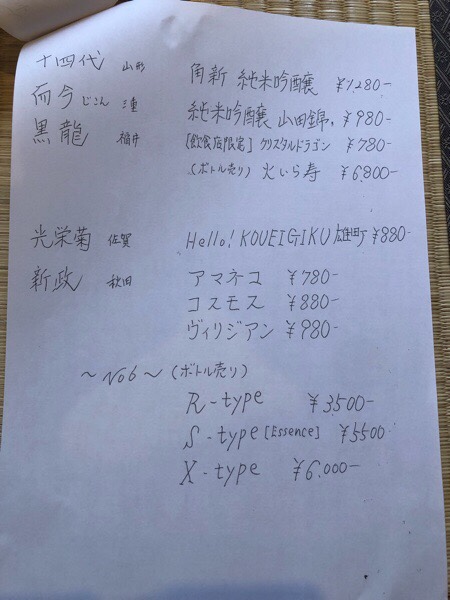 十四代 山形 角新 純米吟醸 ¥1,280-
而今 じこん 三重 純米吟醸 山田錦 ¥980-
黒龍 福井 [飲食店限定] クリスタルドラゴン ¥780-
(ボトル売り) 火いら寿 ¥6,800-
光栄菊 佐賀 Hello! KOUEIGIKU 雄町 ¥880-
新政 秋田 アマネコ ¥780-
コスモス ¥880-
ヴィリジアン ¥980-
～No6～ (ボトル売り)
R-type ¥3,500-
S-type [Essence] ¥5500
X-type ¥6,000-